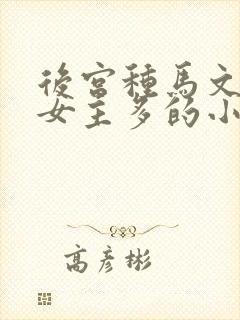 後宮種馬文
女主多的小
高彥彬